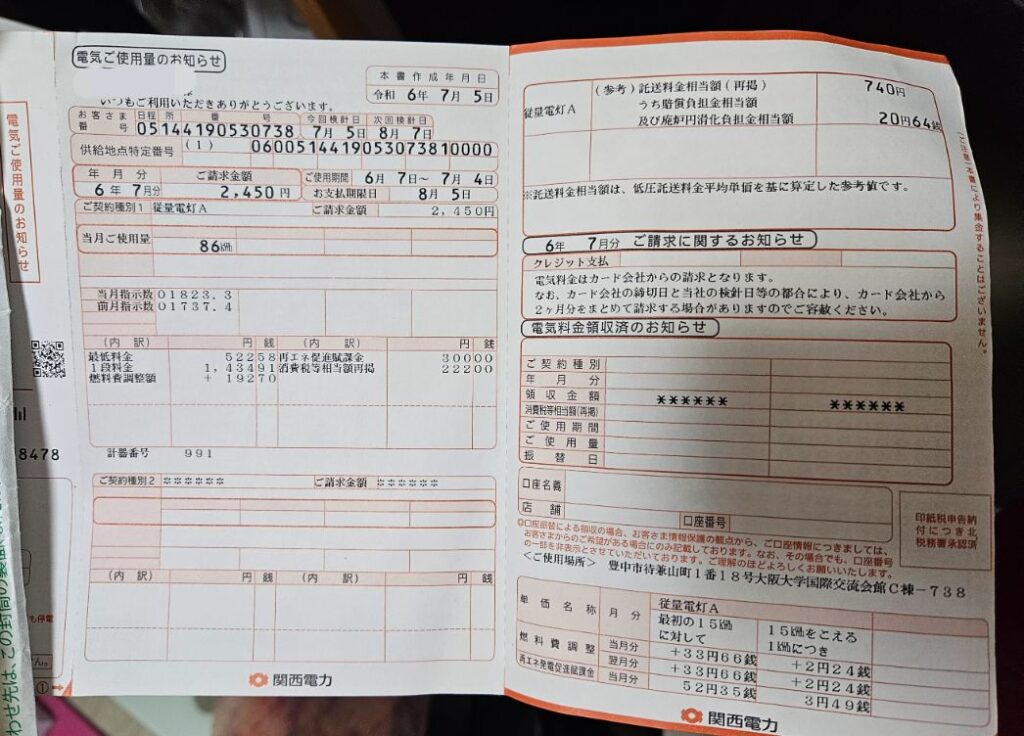 電気ご使用量のお知らせ
電気ご使用量のお知らせ
いつもご利用いただきありがとうございます。
本書作成年月日
令和 6年 7月 5日
お客さま番号 日程 所 番 号 今回検針日 次回検針日
05144190530738 7月 5日 8月 7日
供給地点特定番号 (1) 0600514419053073810000
年月分 ご請求金額 ご使用期間 6月 7日〜 7月 4日
6年 7月分 2,450円 お支払期限日 8月 5日
ご契約種別1 従量電灯A ご請求金額 2,450円
当月ご使用量 86kWh
当月指示数 01823.3
前月指示数 01737.4
(内 訳) 円 銭 (内 訳) 円 銭
最低料金 522 58 再エネ促進賦課金 300 00
1段料金 1,434 91 消費税等相当額再掲 222 00
燃料費調整額 + 192 70
計器番号 991
ご契約種別2 ****** ご請求金額 ******
(内 訳) 円 銭 (内 訳) 円 銭
関西電力
8478
従量電灯A
(参考)託送料金相当額(再掲) 740円
うち賠償負担金相当額
及び廃炉円滑化負担金相当額 20円64銭
※託送料金相当額は、低圧託送料金平均単価を基に算定した参考値です。
6年 7月分 ご請求に関するお知らせ
クレジット支払
電気料金はカード会社からの請求となります。
なお、カード会社の締切日と当社の検針日等の都合により、カード会社から
2ヶ月分をまとめて請求する場合がありますのでご容赦ください。
電気料金領収済のお知らせ
ご契約種別
年月分
領収金額 ****** ******
消費税等相当額(再掲)
ご使用期間
ご使用量
振替日
口座名義
店舗 口座番号
印紙税申告納
付につき北
税務署承認済
◎口座振替による領収の場合、お客さま情報保護の観点から、ご口座情報につきましては、
お客さまからのご希望がある場合にのみ記載しております。なお、その場合でも、口座番号
の一部を非表示とさせていただいております。ご理解のほどよろしくお願いいたします。
<ご使用場所> 豊中市待兼山町1番18号大阪大学国際交流会館C棟-738
単価名称 月分 従量電灯A
最初の15kWhに対して 15kWhをこえる1kWhにつき
燃料費調整 当月分 +33円66銭 +2円24銭
翌月分 +33円66銭 +2円24銭
再エネ発電促進賦課金 当月分 52円35銭 3円49銭
関西電力
(ご注意)本書により集金することはございません。